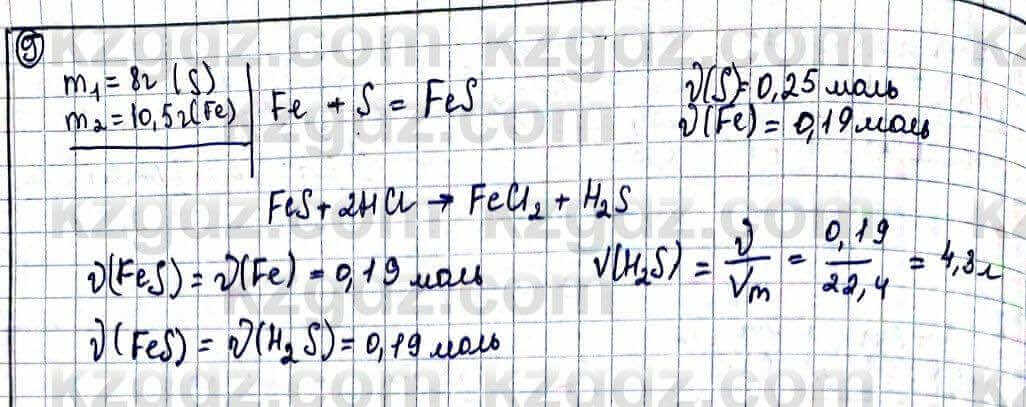 9
m₁ = 8г (S)
m₂ = 10,5г(Fe)
Fe + S = FeS
ν(S)= 0,25 моль
ν(Fe) = 0,19 моль
FeS + 2HCl → FeCl₂ + H₂S
ν(FeS) = ν(Fe) = 0,19 моль
V(H₂S) = ν/Vm = 0,19/22,4 = 4,3 л
ν(FeS) = ν(H₂S) = 0,19 моль
kzgdz.com